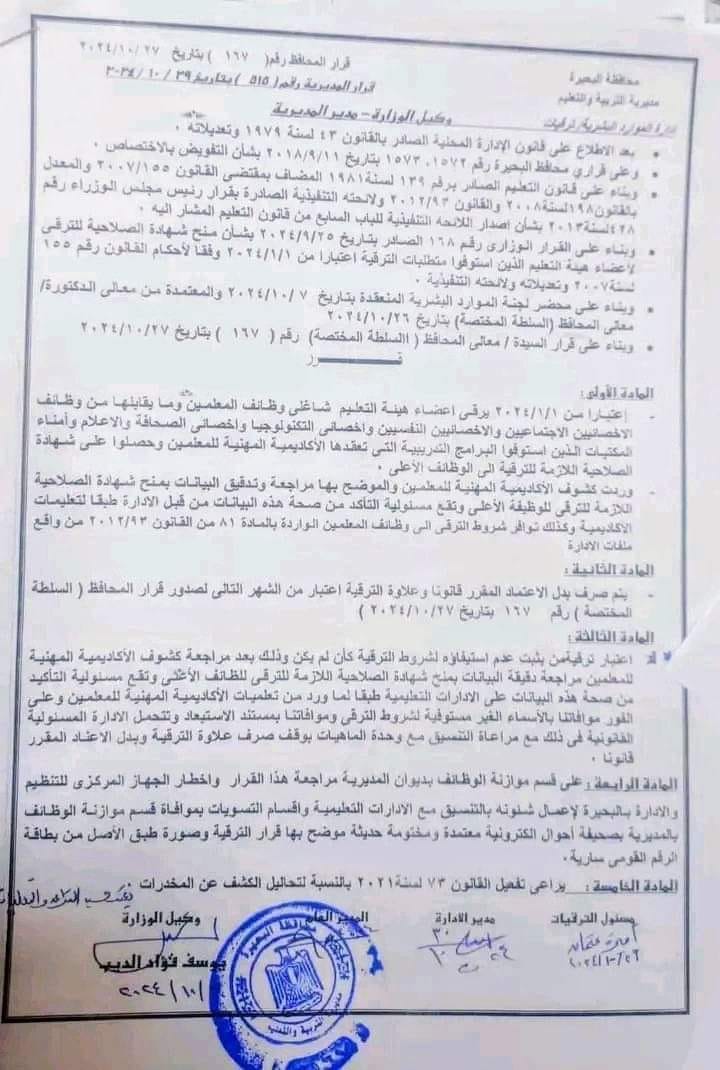 قرار المحافظ رقم( ١٦٧ ) بتاريخ ٢٠٢٤/١٠/٢٧
محافظة البحيرة
قرار المديرية رقم( ٥١٥ ) بتاريخ ٢٠٢٤/١٠/٢٩
مديرية التربية والتعليم
إدارة الموارد البشرية/ ترقيات
وكيل الوزارة - مدير المديرية
• بعد الاطلاع على قانون الإدارة المحلية الصادر بالقانون ٤٣ لسنة ١٩٧٩ وتعديلاته .
• وعلى قراري محافظ البحيرة رقم ١٥٧٢، ١٥٧٣ بتاريخ ٢٠١٨/٩/١١ بشأن التفويض بالاختصاص .
• وبناء على قانون التعليم الصادر برقم ١٣٩ لسنة١٩٨١ المضاف بمقتضى القانون ٢٠٠٧/١٥٥ والمعدل
بالقانون١٩٨لسنة٢٠٠٨ والقانون ٢٠١٢/٩٣ ولائحته التنفيذية الصادرة بقرار رئيس مجلس الوزراء رقم
٤٢٨لسنة٢٠١٣ بشأن اصدار اللائحه التنفيذية للباب السابع من قانون التعليم المشار اليه .
• وبناء على القرار الوزارى رقم ١٦٨ الصادر بتاريخ ٢٠٢٤/٩/٢٥ بشأن منح شهادة الصلاحية للترقى
لأعضاء هيئة التعليم الذين استوفوا متطلبات الترقية اعتبارا من ٢٠٢٤/١/١ وفقا لأحكام القانون رقم ١٥٥
لسنة٢٠٠٧ وتعديلاته ولائحته التنفيذية .
• وبناء على محضر لجنة الموارد البشرية المنعقدة بتاريخ ٢٠٢٤/١٠/٧ والمعتمدة من معالى الدكتورة/
معالى المحافظ (السلطة المختصة) بتاريخ ٢٠٢٤/١٠/٢٦
• وبناء على قرار السيدة / معالى المحافظ ( السلطة المختصة) رقم ( ١٦٧ ) بتاريخ ٢٠٢٤/١٠/٢٧
قـــــــــرر
المادة الأولى:
- إعتبارا من ٢٠٢٤/١/١ يرقى اعضاء هيئة التعليم شاغلى وظائف المعلمين وما يقابلها من وظائف
الاخصائيين الاجتماعيين والاخصائيين النفسيين واخصائى التكنولوجيا واخصائى الصحافة والاعلام وأمناء
المكتبات الذين استوفوا البرامج التدريبية التى تعقدها الأكاديمية المهنية للمعلمين وحصلوا على شهادة
الصلاحية اللازمة للترقية الى الوظائف الأعلى .
- وردت كشوف الأكاديمية المهنية للمعلمين والموضح بها مراجعة وتدقيق البيانات بمنح شهادة الصلاحية
اللازمة للترقى للوظيفة الأعلى وتقع مسئولية التأكد من صحة هذه البيانات من قبل الادارة طبقا لتعليمات
الأكاديمية وكذلك توافر شروط الترقى الى وظائف المعلمين الواردة بالمادة ٨١ من القانون ٢٠١٢/٩٣ من واقع
ملفات الادارة
المادة الثانية:
- يتم صرف بدل الاعتماد المقرر قانونا وعلاوة الترقية اعتبار من الشهر التالى لصدور قرار المحافظ ( السلطة
المختصة ) رقم ١٦٧ بتاريخ ٢٠٢٤/١٠/٢٧ )
المادة الثالثة:
اعتبار ترقيةمن يثبت عدم استيفاؤه لشروط الترقية كأن لم يكن وذلك بعد مراجعة كشوف الأكاديمية المهنية
للمعلمين مراجعة دقيقة البيانات بمنح شهادة الصلاحية اللازمة للترقى للظائف الأعلى وتقع مسئولية التأكيد
من صحة هذه البيانات على الادارات التعليمية طبقا لما ورد من تعلميات الأكاديمية المهنية للمعلمين وعلى
الفور موافاتنا بالأسماء الغير مستوفية لشروط الترقى وموافاتنا بمستند الاستبعاد وتتحمل الادارة المسئولية
القانونية فى ذلك مع مراعاة التنسيق مع وحدة الماهيات بوقف صرف علاوة الترقية وبدل الاعتاد المقرر
قانونا .
المادة الرابعة: على قسم موازنة الوظائف بديوان المديرية مراجعة هذا القرار واخطار الجهاز المركزى للتنظيم
والادارة بالبحيرة لإعمال شئونه بالتنسيق مع الادارات التعليمية واقسام التسويات بموافاة قسم موازنة الوظائف
بالمديرية بصحيفة أحوال الكترونية معتمدة ومختومة حديثة موضح بها قرار الترقية وصورة طبق الأصل من بطاقة
الرقم القومى سارية .
المادة الخامسة: يراعى تفعيل القانون ٧٣ لسنة٢٠٢١ بالنسبة لتحاليل الكشف عن المخدرات
مسئول الترقيات
مدير الادارة
المدير العام
وكيل الوزارة
يوسف فؤاد الديب
محافظة البحيرة
مديرية التربية والتعليم